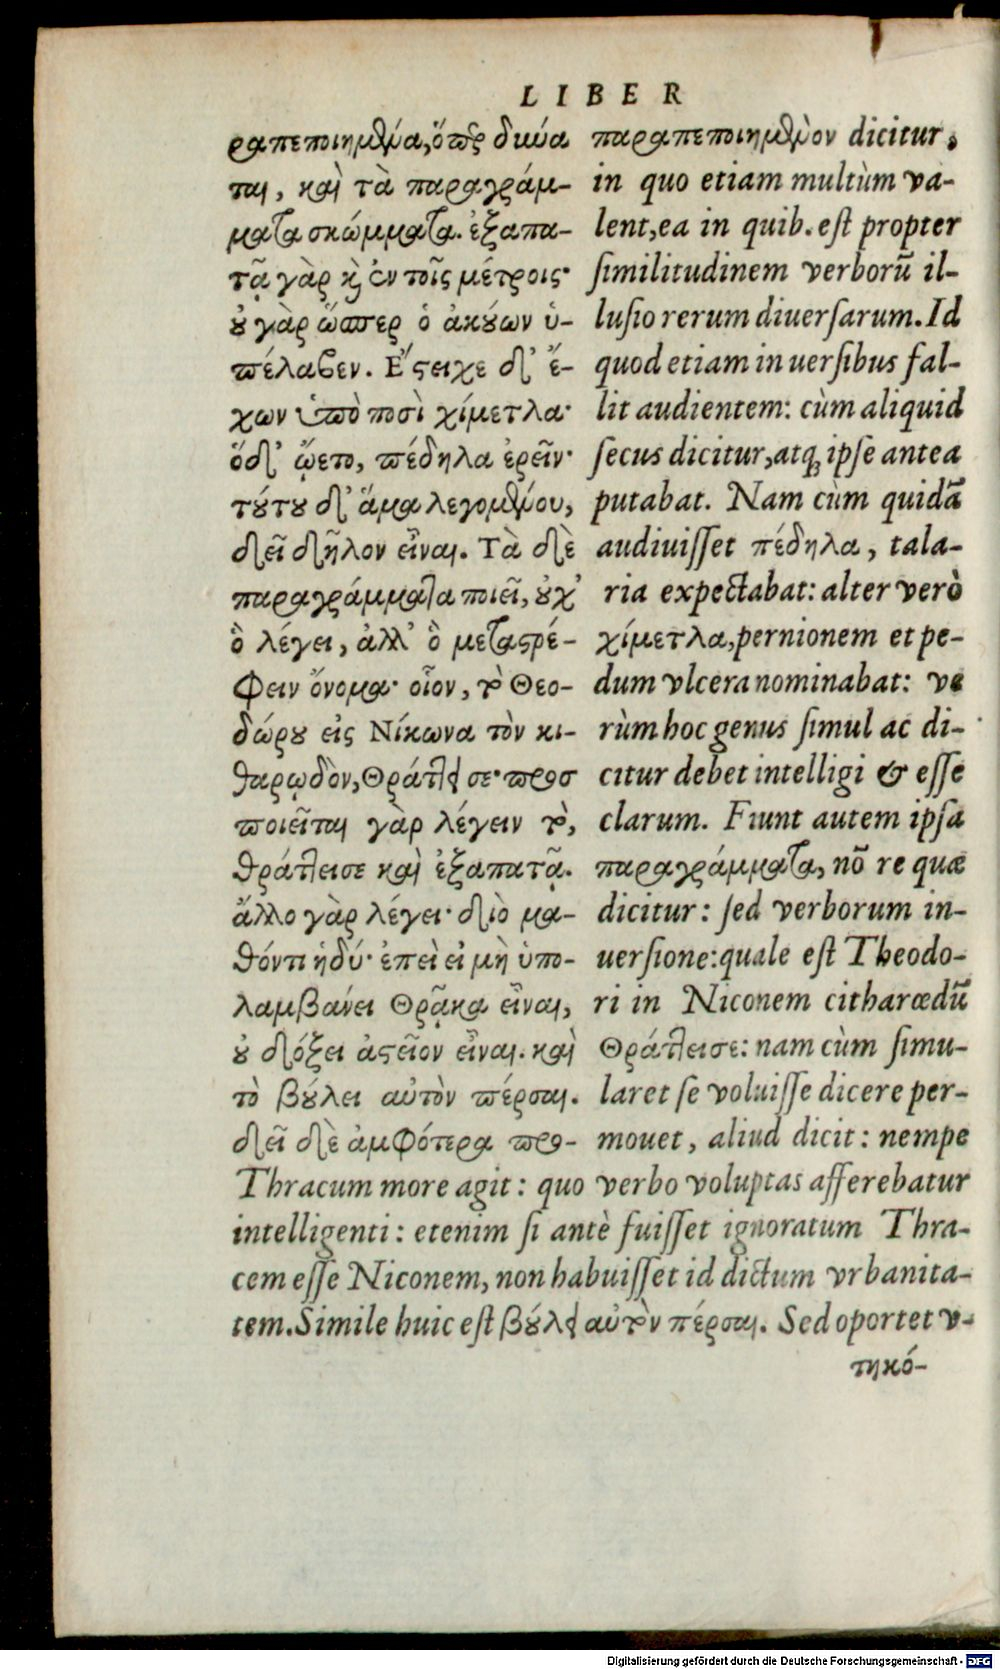 LIBER
ραπεποιημένα, ὅπερ δύνα
ται, καὶ τὰ παραγράμ-
ματα σκώμματα. ἐξαπα-
τᾷ γὰρ καὶ ἐν τοῖς μέτροις·
οὐ γὰρ ὥσπερ ὁ ἀκούων ὑ-
πέλαβεν. Ἔστειχε δ' ἔ-
χων ὑπὸ ποσὶ χίμετλα·
ὅδ' ᾤετο, πέδηλα ἐρεῖν·
τούτου δ' ἅμα λεγομένου,
δεῖ δῆλον εἶναι. Τὰ δὲ
παραγράμματα ποιεῖ, οὐχ'
ὃ λέγει, ἀλλ' ὃ μεταστρέ-
φειν ὄνομα· οἷον, τὸ Θεο-
δώρου εἰς Νίκωνα τὸν κι-
θαρῳδὸν, Θράττει σε· προσ
ποιεῖται γὰρ λέγειν τὸ,
θράττει σε καὶ ἐξαπατᾷ.
ἄλλο γὰρ λέγει· διὸ μα-
θόντι ἡδύ· ἐπεὶ εἰ μὴ ὑπο-
λαμβάνει Θρᾷκα εἶναι,
οὐ δόξει ἀστεῖον εἶναι. καὶ
τὸ βούλει αὐτὸν πέρσαι.
δεῖ δὲ ἀμφότερα προ-
παραπεποιημένον dicitur,
in quo etiam multùm va-
lent, ea in quib. est propter
similitudinem verborũ il-
lusio rerum diuersarum. Id
quod etiam in uersibus fal-
lit audientem: cùm aliquid
secus dicitur, atq; ipse antea
putabat. Nam cùm quidã
audiuisset πέδηλα, tala-
ria expectabat: alter verò
χίμετλα, pernionem et pe-
dum vlcera nominabat: ve
rùm hoc genus simul ac di-
citur debet intelligi & esse
clarum. Fiunt autem ipsa
παραγράμματα, nõ re quæ
dicitur: sed verborum in-
uersione: quale est Theodo-
ri in Niconem citharœdũ
Θράττεισε: nam cùm simu-
laret se voluisse dicere per-
mouet, aliud dicit: nempe
Thracum more agit: quo verbo voluptas afferebatur
intelligenti: etenim si antè fuisset ignoratum Thra-
cem esse Niconem, non habuisset id dictum vrbanita-
tem. Simile huic est βούλει αὐτὸν πέρσαι. Sed oportet v-
τηκό-
Digitalisierung gefördert durch die Deutsche Forschungsgemeinschaft - DFG